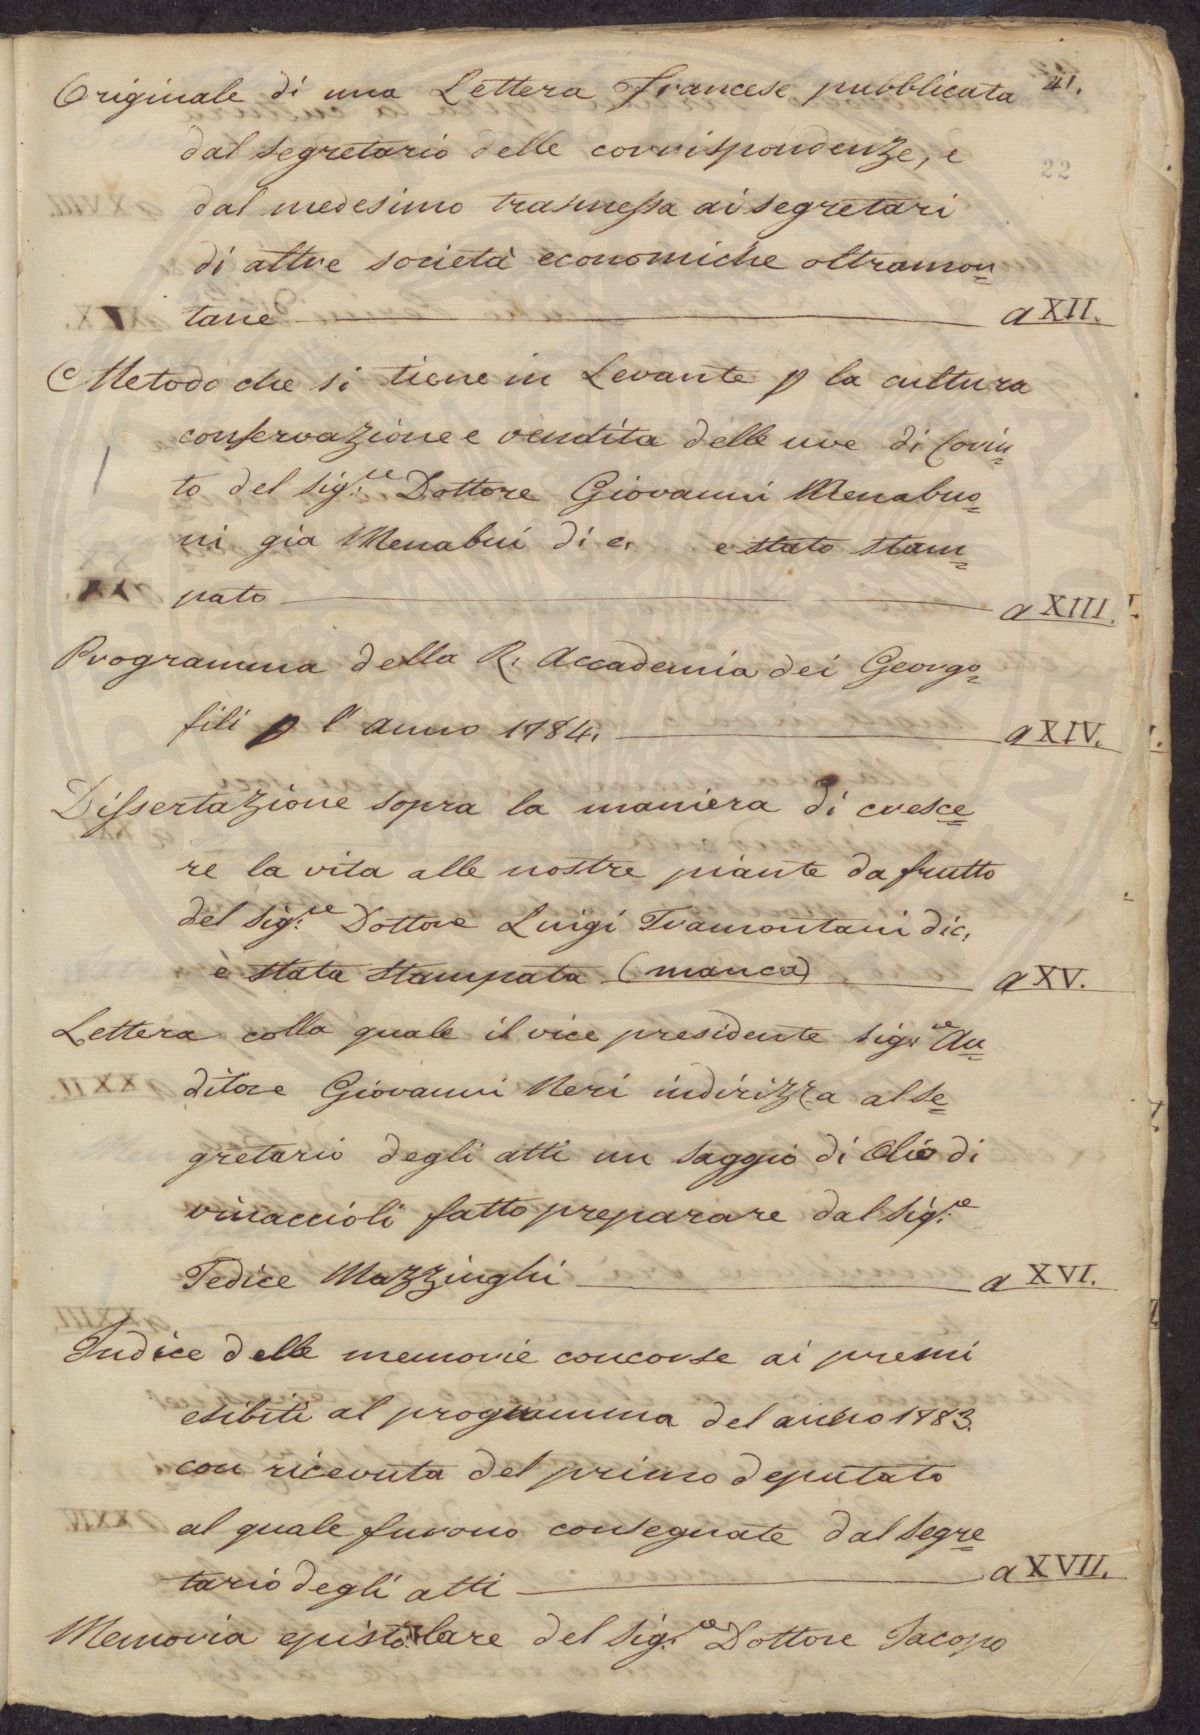 41.
22
Originale di una Lettera francese pubblicata
dal segretario delle corrispondenze, e
dal medesimo trasmessa ai segretari
di altre società economiche oltramon=
tane a XII.
Metodo che si tiene in Levante p la cultura
conservazione e vendita delle uve di Corin=
to del Sig.re Dottore Giovanni Menabuo=
ni già Menabui di c. e stato stam=
pato a XIII.
Programma della R. Accademia dei Georgo=
fili p l'anno 1784. a XIV.
Dissertazione sopra la maniera di cresce=
re la vita alle nostre piante da frutto
del Sig.re Dottore Luigi Tramontani di c.
è stata stampata (manca) a XV.
Lettera colla quale il vice presidente Sig.re Au=
ditore Giovanni Neri indirizza al se=
gretario degli atti un saggio di Olio di
vinaccioli fatto preparare dal Sig.re
Tedice Mazzinghi a XVI.
Indice delle memorie concorse ai premi
esibiti al programma del anno 1783.
con ricevuta del primo deputato
al quale furono consegnate dal Segre=
tario degli atti a XVII.
Memoria epistolare del Sig.re Dottore Jacopo